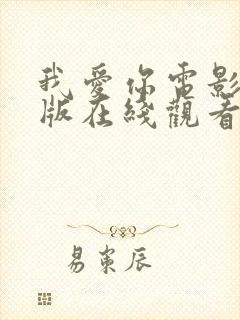 我愛你電影
版在綫觀看
易寞辰